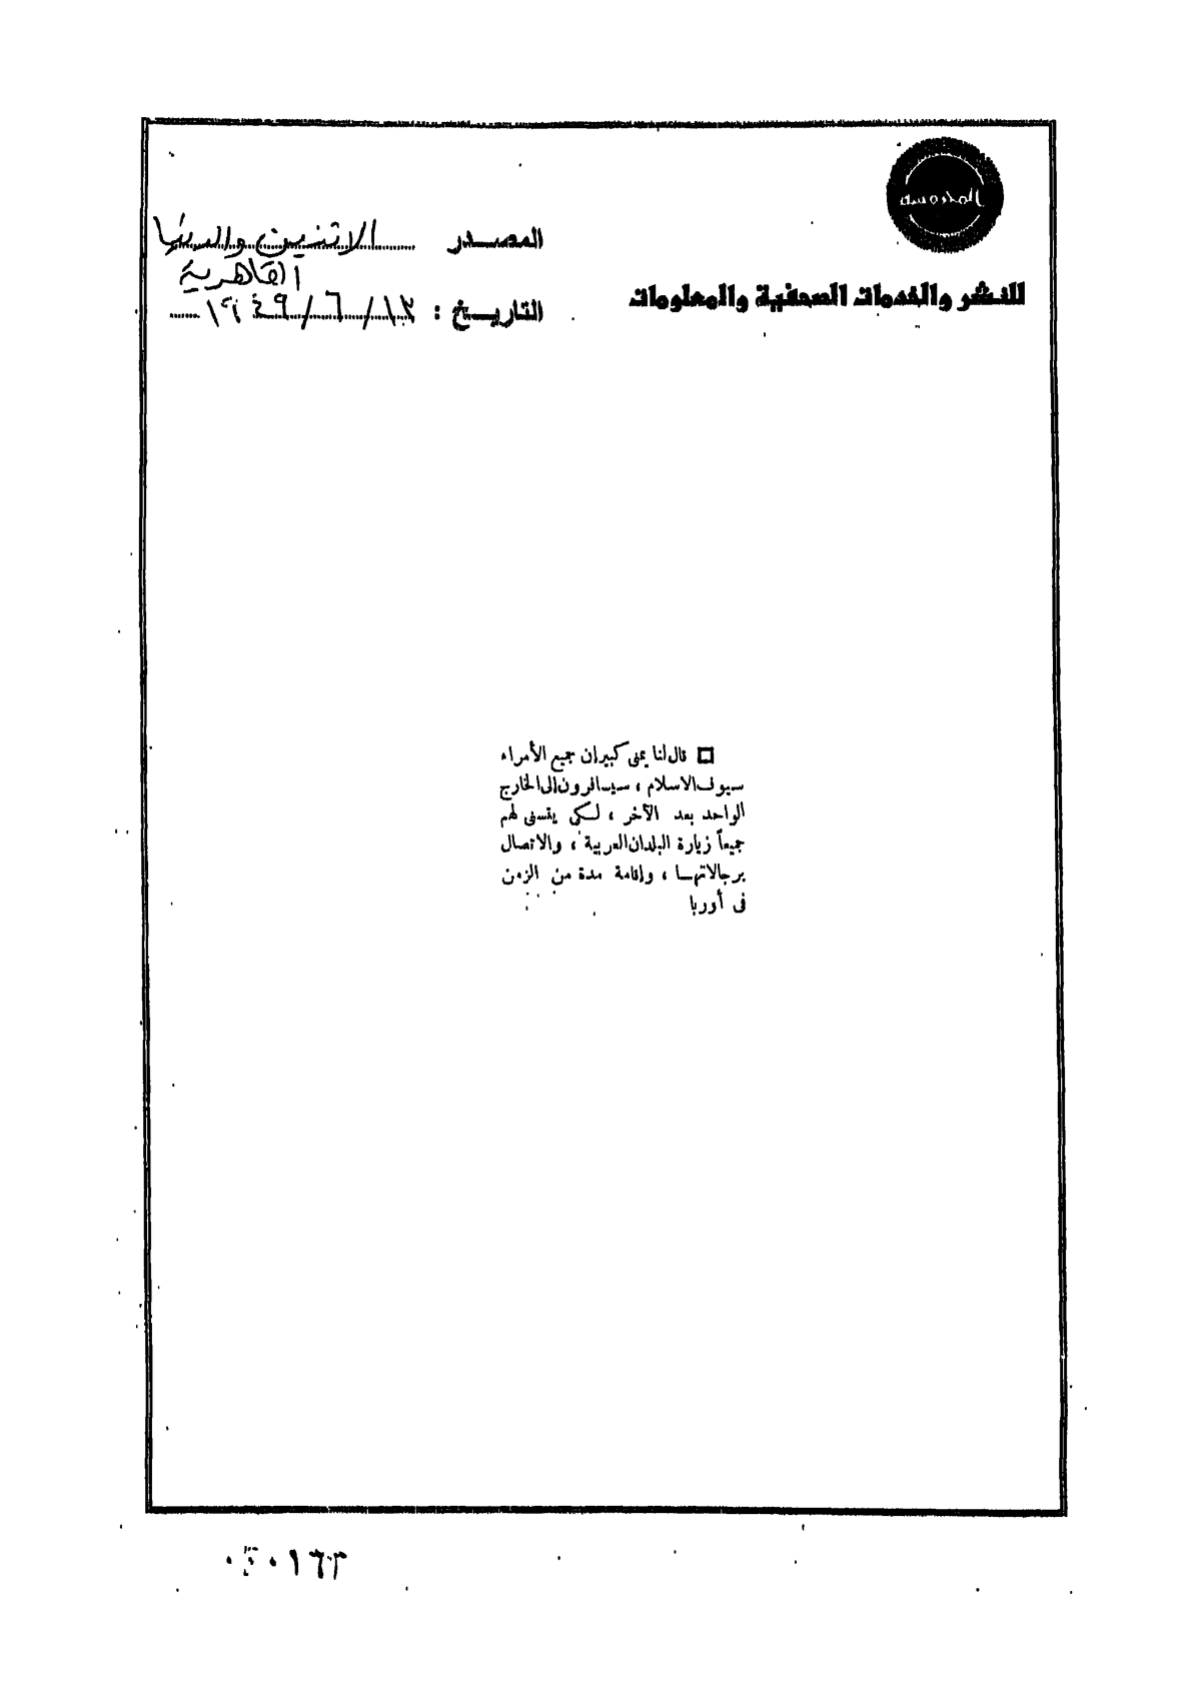 المحروسة
للنشر والخدمات الصحفية والمعلومات
المصدر الاثنين والدنيا
القاهرية
التاريخ : ١٣/٦/١٩٤٩
□ قال لنا يمنى كبير إن جميع الأمراء
سيوف الاسلام ، سيسافرون إلى الخارج
الواحد بعد الآخر ، لكى يتسنى لهم
جميعاً زيارة البلدان العربية ، والاتصال
برجالاتها ، وإقامة مدة من الزمن
فى أوربا